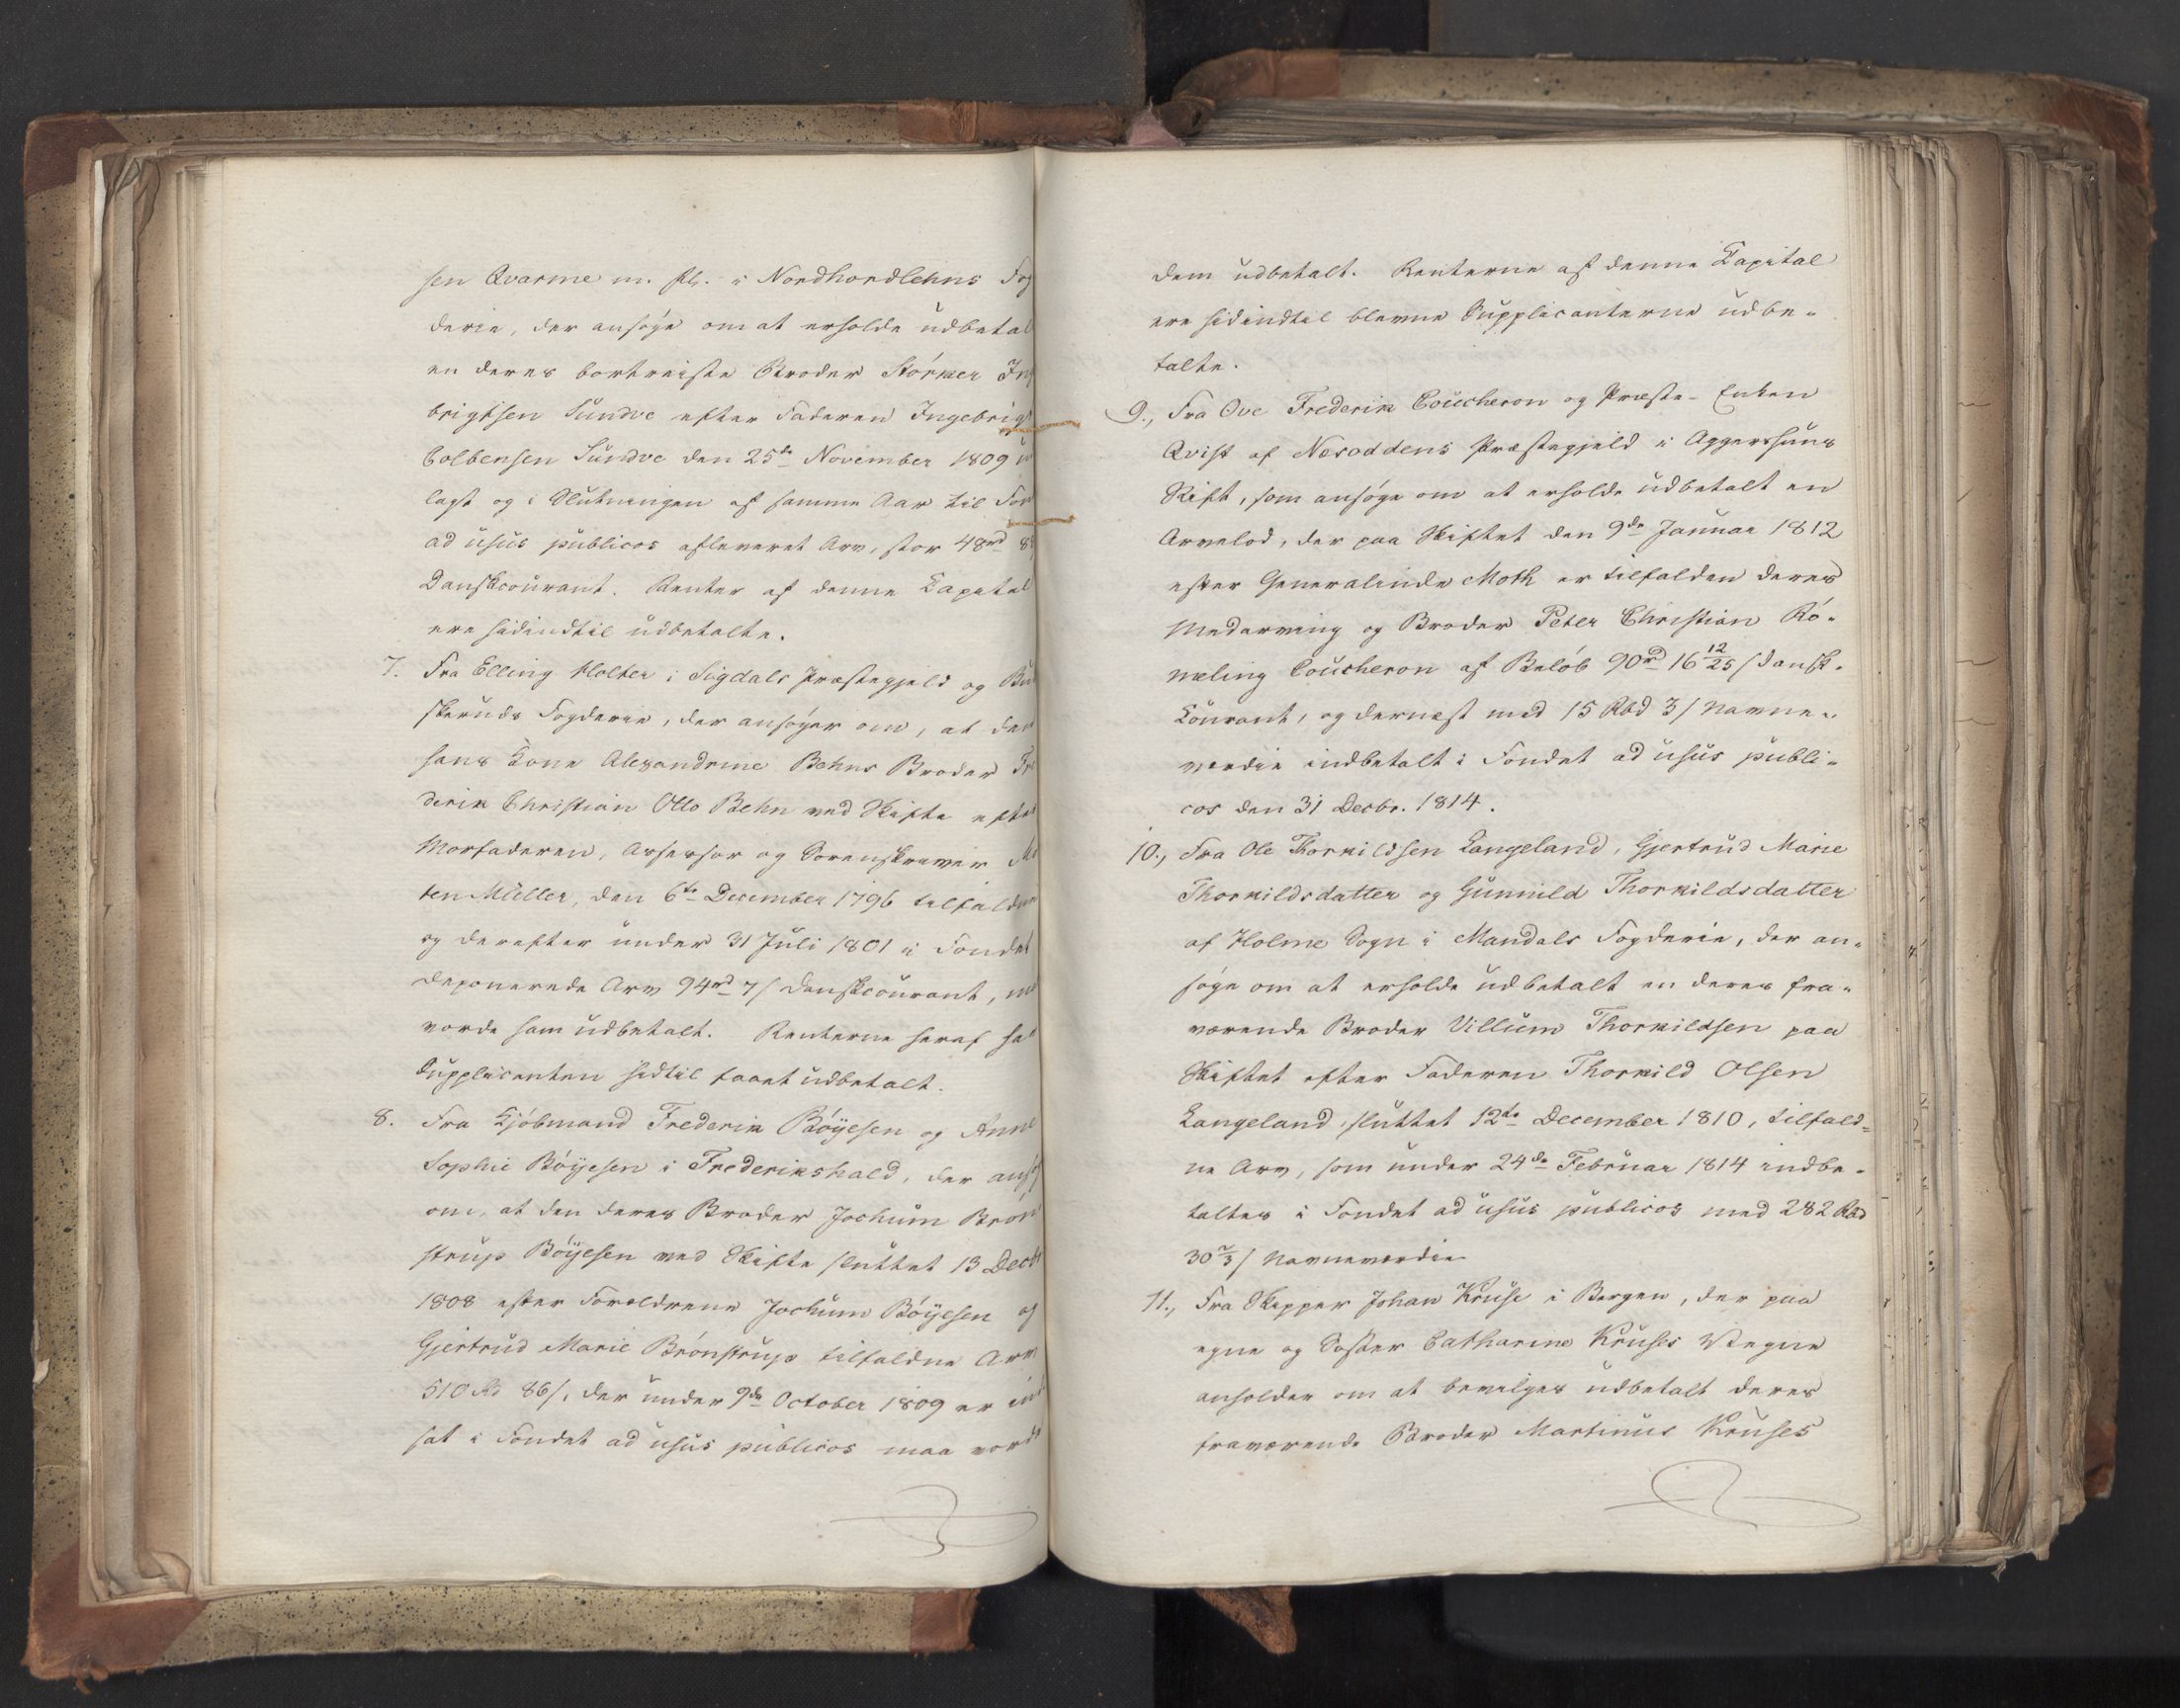 sen Qvarme m. fl. i Nordhordlehns Fog
derie, der ansøge om at erholde udbetal
en deres bortreiste Broder Störker Ing
brigtsen Sundve efter Faderen Ingebrigt
Colbensen Sundve den 25de November 1809
lagt og i Slutningen af samme Aar til Fon
ad usus publicos afleveret Arv, stor 48rd 8
Danskcourant. Renter af denne Capital
ere hidindtil udbetalte.
7. Fra Elling Holter i Sigdals Præstegjeld og Bu
skeruds Fogderie, der ansøger om, at den
hans Kone Alexandrine Behns Broder Fre
derik Christian Otto Behn ved Skifte efter
Morfaderen, Assessor og Sorenskriver Mo
ten Müller, den 6te December 1796 tilfaldne
og derefter under 31 Juli 1801 i Fondet
deponerede Arv 94rd 7/ Danskcourant, maa
vorde ham udbetalt. Renterne heraf har
Supplicanten hidtil faaet udbetalt.
8. Fra Kjøbmand Frederik Böyesen og Anne
Sophie Böyesen i Frederikshald, der ansø
om, at den deres Broder Jochum Brön
strup Böyesen ved Skifte sluttet 13 Decbr
1808 efter Forældrene Jochum Böyesen og
Gjertrud Marie Brönstrup tilfaldne Arv
510 Rd 86/, der under 9de October 1809 er ind
sat i Fondet ad usus publicos maa vorde
dem udbetalt. Renterne af denne Capital
ere hidindtil blevne Supplicanterne udbe-
talte.
9., Fra Ove Frederik Coucheron og Præste-Enken
Qvist af Nesoddens Præstegjeld i Aggershuus
Stift, som ansøge om at erholde udbetalt en
Arvelod, der paa Skiftet den 9de Januar 1812
efter Generalinde Moth er tilfalden deres
Medarving og Broder Peter Christian Rö-
meling Coucheron af Beløb 90rd 16 12/25 / dansk-
Courant, og dernæst med 15 Rbd 3/ Navne-
værdie indbetalt i Fondet ad usus publi-
cos den 31 Decbr. 1814.
10., Fra Ole Thorkildsen Langeland, Gjertrud Marie
Thorkildsdatter og Gunnild Thorkildsdatter
af Holme Sogn i Mandals Fogderie, der an-
søge om at erholde udbetalt en deres fra-
værende Broder Villum Thorkildsen paa
Skiftet efter Faderen Thorkild Olsen
Langeland, sluttet 12te December 1810, tilfald-
ne Arv, som under 24de Februar 1814 indbe-
taltes i Fondet ad usus publicos med 282 Rbd
30 2/3 / Navneværdie
11., Fra Skipper Johan Kruse i Bergen, der paa
egne og Søster Catharine Kruses Vegne
anholder om at bevilges udbetalt deres
fraværende Broder Martinus Kruses